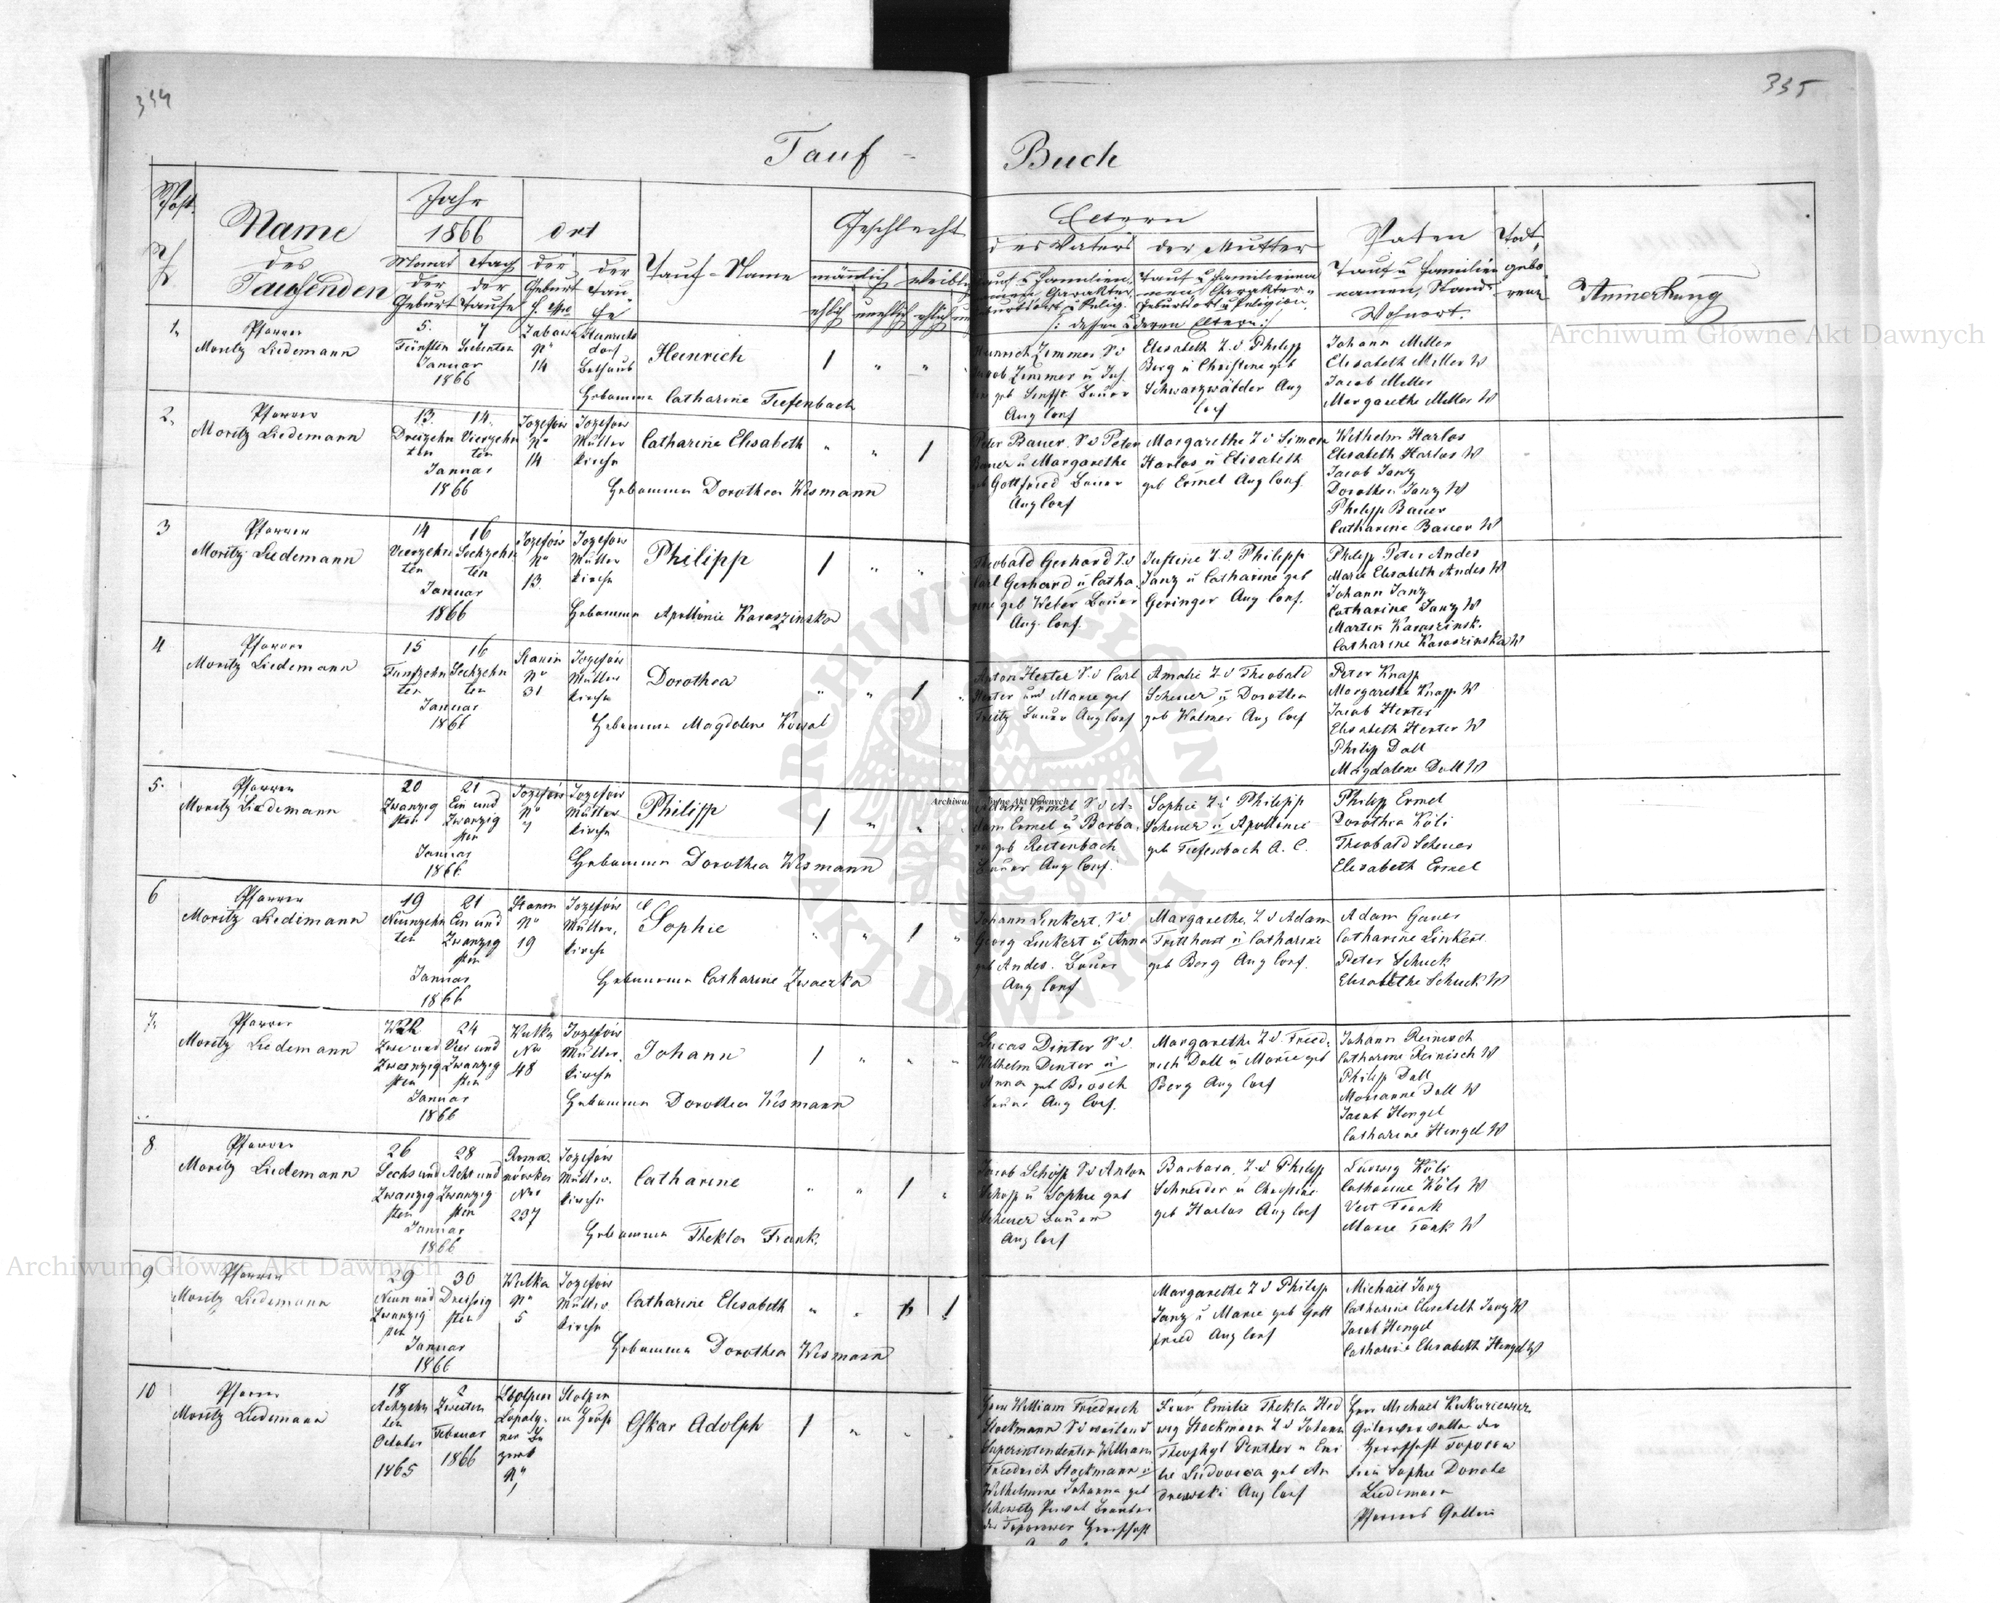 334
335
Tauf - Buch
Post
Name
des
Taufenden
Jahr
1866
Monat
der
Geburt
Tag
der
Taufe
Ort
der
Geburt
der
Tau-
fe
Tauf-Name
Geschlecht
männlich
weiblich
ehlich unehlich ehlich
Eltern
des Vaters
der Mutter
Paten
Tauf u Familien
namen, Stand
Wohnort.
Todt
gebo
rene
Anmerkung
1.
Pfarrer
Moritz Liedemann
5. 7
Fünften Siebenten
Januar
1866
No
14
Bethaus
Heinrich
1
Hebamme Catharine Tiefenbach
Heinrich Zimmer S. d
Jacob Zimmer u
geb Senfft Bauer
Aug Conf
Elisabeth T. d Philipp
Berg u Christine geb
Schwarzwälder Aug
Conf
Johann Miller
Elisabeth Miller W
Jacob Miller
Margarethe Miller W
2.
Pfarrer
Moritz Liedemann
13. 14.
Dreizehn Vierzehn
ten ten
Januar
1866
Jozefow
No
14
Jozefow
Mutter
kirche
Catharine Elisabeth
1
Hebamme Dorothea Wismann
Peter Bauer S d Peter
Bauer u Margarethe
geb Gottfried Bauer
Aug Conf
Margarethe T d Simon
Harlos u Elisabeth
geb Ermel Aug Conf
Wilhelm Harlos
Elisabeth Harlos W
Jacob Janz
Dorothea Janz W
Philipp Bauer
Catharine Bauer W
3
Pfarrer
Moritz Liedemann
14 16
Vierzehn Sechzehn
ten ten
Januar
1866
Jozefow
No
13
Jozefow
Mutter
kirche
Philipp
1
Hebamme Apollonie Karaszinska
Theobald Gerhard S d
Carl Gerhard u Catha
rine geb Weber Bauer
Aug. Conf.
Justine T. d Philipp
Janz u Catharine geb
Geringer Aug Conf.
Philipp Peter Andes
Marie Elisabeth Andes W
Johann Janz
Catharine Janz W
Martin Karaszinsk.
Catharine Karaszinska W
4
Pfarrer
Moritz Liedemann
15 16
Fünfzehn Sechzehn
ten ten
Januar
1866
Stanin
No
31
Jozefow
Mutter
kirche
Dorothea
1
Hebamme Magdalene Kowal
Anton Herter S d Carl
Herter und Marie geb
Fritz Bauer Aug Conf
Amalie T d Theobald
Scheuer u Dorothea
geb Walmer Aug Conf
Peter Knapp
Margarethe Knapp W
Jacob Herter
Elisabeth Herter W
Philipp Dall
Magdalene Dall W
5.
Pfarrer
Moritz Liedemann
20 21
Zwanzig Ein und
sten Zwanzig
sten
Januar
1866
Jozefow
No
7
Jozefow
Mutter
kirche
Philipp
1
Hebamme Dorothea Wismann
Adam Ermel S d A-
dam Ermel u Barba
ra geb Reitenbach
Bauer Aug Conf.
Sophie T d Philipp
Scheuer u Apollonie
geb Tiefenbach A. C.
Philipp Ermel
Dorothea Köli
Theobald Scheuer
Elisabeth Ermel
6
Pfarrer
Moritz Liedemann
19 21
Neunzehn Ein und
ten Zwanzig
sten
Januar
1866
Stanin
No
19
Jozefow
Mutter
kirche
Sophie
1
Hebamme Catharine Zwaczka
Johann Linkert, S d
Georg Linkert u Anna
geb Andes. Bauer
Aug Conf
Margarethe, T d Adam
Tritthart u Catharine
geb Berg Aug Conf.
Adam Gauer
Catharine Linkert
Peter Schuck
Elisabethe Schuck W
7.
Pfarrer
Moritz Liedemann
22 24
Zwei und Vier und
Zwanzig Zwanzig
sten sten
Januar
1866
Wulka
No
48
Jozefow
Mutter
kirche
Johann
1
Hebamme Dorothea Wismann
Lucas Dinter S d
Wilhelm Dinter u
Anna geb Brosch
Bauer Aug Conf.
Margarethe T d Fried-
rich Dall u Marie geb
Berg Aug Conf
Johann Reinisch
Catharine Reinisch W
Philipp Dall
Marianne Dall W
Jacob Hengel
Catharine Hengel W
8
Pfarrer
Moritz Liedemann
26 28
Sechs und Acht und
Zwanzig Zwanzig
sten sten
Januar
1866
Roma
nówka
No
237
Jozefow
Mutter
kirche
Catharine
1
Hebamme Thekla Frank.
Jacob Schöpp S d Anton
Schöpp u Sophie geb
Scheuer Bauer
Aug Conf
Barbara, T d Philipp
Schneider u Christine
geb Harlos Aug Conf
Ludwig Köli
Catharine Köli W
Veit Frank
Marie Frank W
9
Pfarrer
Moritz Liedemann
29 30
Neun und Dreissig
Zwanzig sten
sten
Januar
1866
Wulka
No
5
Jozefow
Mutter
kirche
Catharine Elisabeth
1
Hebamme Dorothea Wismann
Margarethe T d Philipp
Janz u Marie geb Gott
fried Aug Conf
Michael Janz
Catharine Elisabeth Janz W
Jacob Hengel
Catharine Elisabeth Hengel W
10
Pfarrer
Moritz Liedemann
18 2
Achzehn Zweiten
ten
October Februar
1865 1866
Oskar Adolph
1
Herr William Friedrich
Stockmann S d weiland
Superintendenten William
Friedrich Stockmann u
Wilhelmine Johanna geb
Frau Emilie Thekla Hed
wig Stockmann T d Johann
Theophyl Penther u Emi
lie Ludovica geb An
drewski Aug Conf
Herr Michael Kukuriewicz
Güterverwalter der
Herrschaft Toporow
Frau Sophie Donate
Liedemann
Pfarrers Gattin
Archiwum Główne Akt Dawnych
Archiwum Główne Akt Dawnych
Archiwum Główne Akt Dawnych
ARCHIWUM GŁÓWNE AKT DAWNYCH